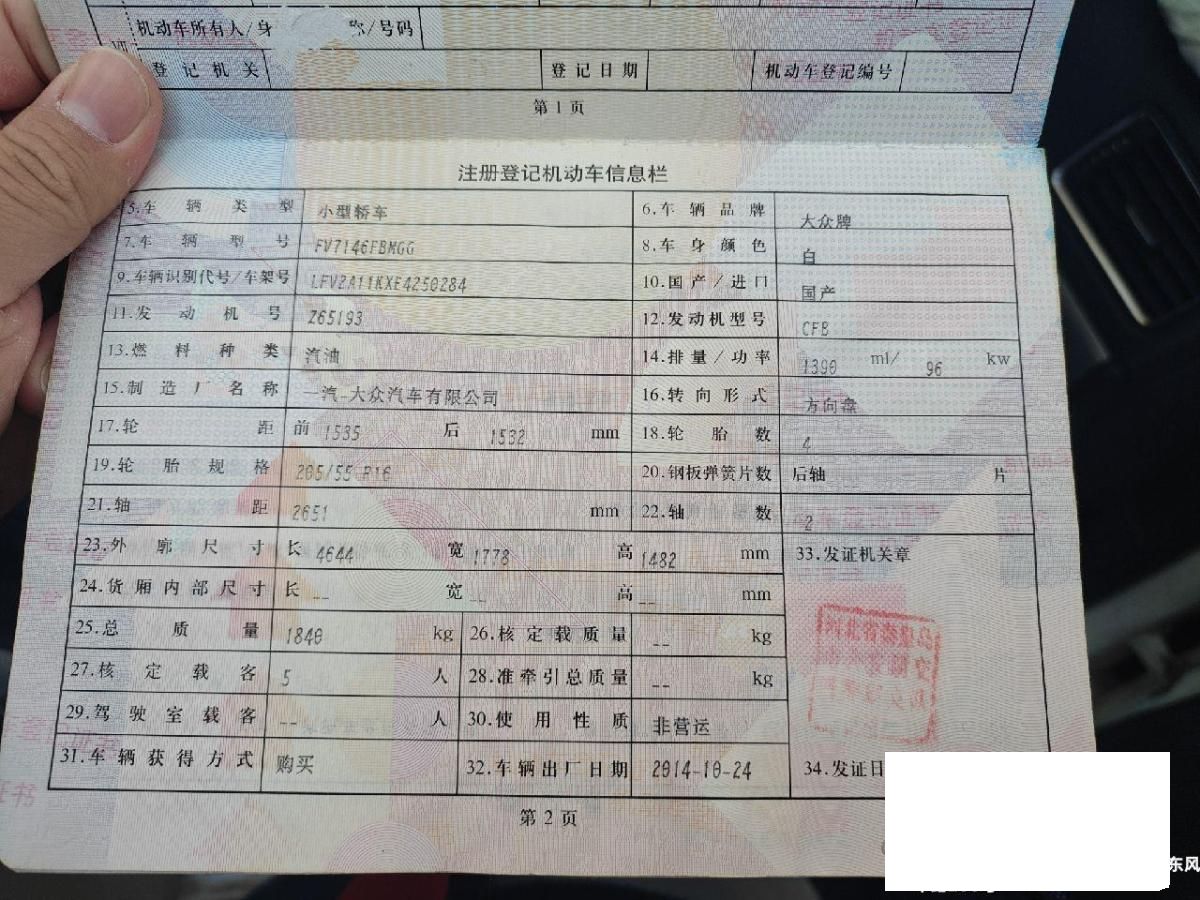 机动车所有人/身 称/号码
登记机关 登记日期 机动车登记编号
第1页
注册登记机动车信息栏
5.车辆类型 小型轿车 6.车辆品牌 大众牌
7.车辆型号 FV7146FBMGG 8.车身颜色 白
9.车辆识别代号/车架号 LFV2A11KXE4250284 10.国产/进口 国产
11.发动机号 Z65193 12.发动机型号 CFB
13.燃料种类 汽油 14.排量/功率 1390 ml/ 96 kw
15.制造厂名称 一汽-大众汽车有限公司 16.转向形式 方向盘
17.轮距 前 1535 后 1532 mm 18.轮胎数 4
19.轮胎规格 205/55 R16 20.钢板弹簧片数 后轴 片
21.轴距 2651 mm 22.轴数 2
23.外廓尺寸 长 4644 宽 1778 高 1482 mm 33.发证机关章
24.货厢内部尺寸 长 -- 宽 -- 高 -- mm
25.总质量 1840 kg 26.核定载质量 -- kg
27.核定载客 5 人 28.准牵引总质量 -- kg
29.驾驶室载客 -- 人 30.使用性质 非营运
31.车辆获得方式 购买 32.车辆出厂日期 2014-10-24 34.发证日
第2页
东风